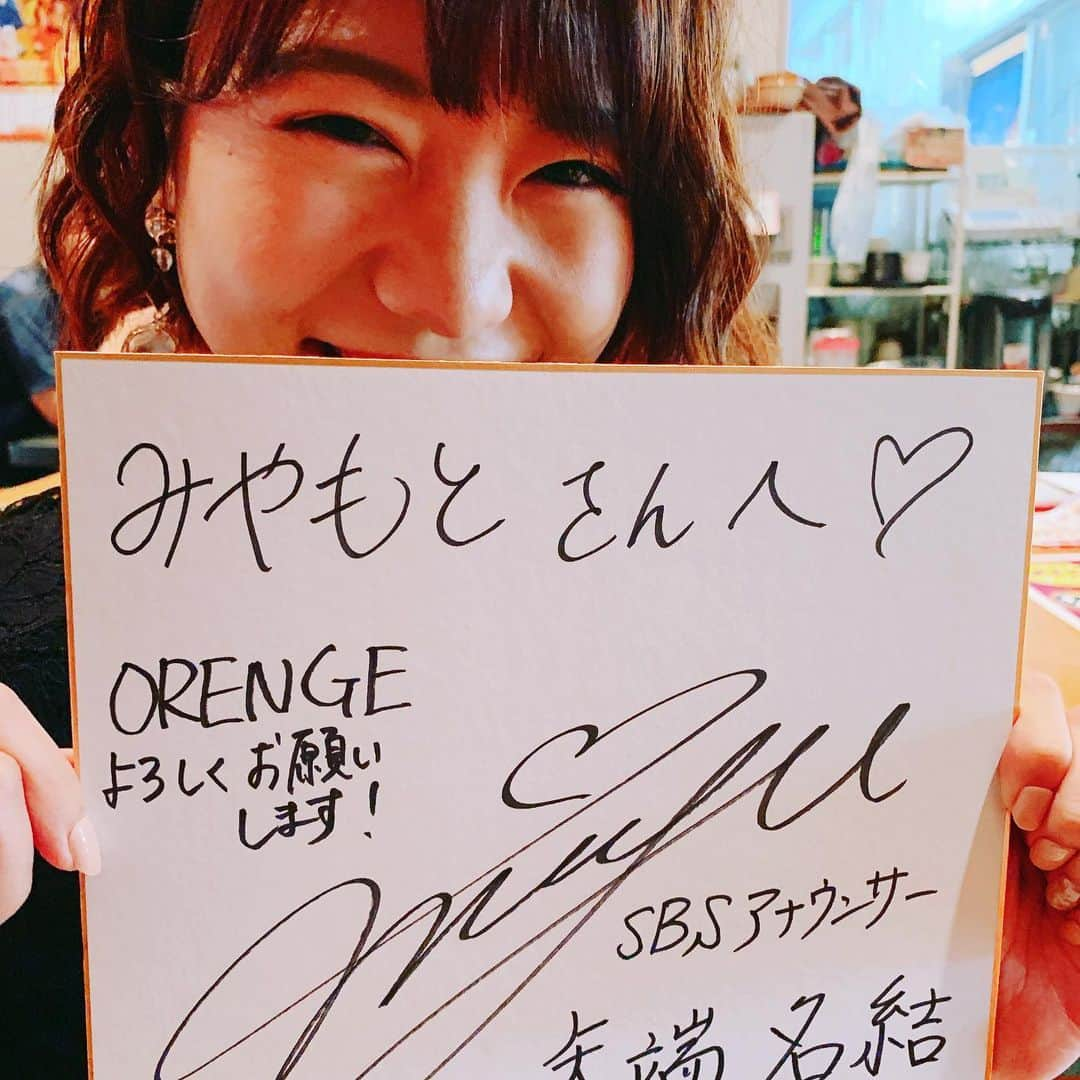 みやもと さんへ♡
ORENGE
よろしくお願い
します!
SBSアナウンサー
矢端 名結